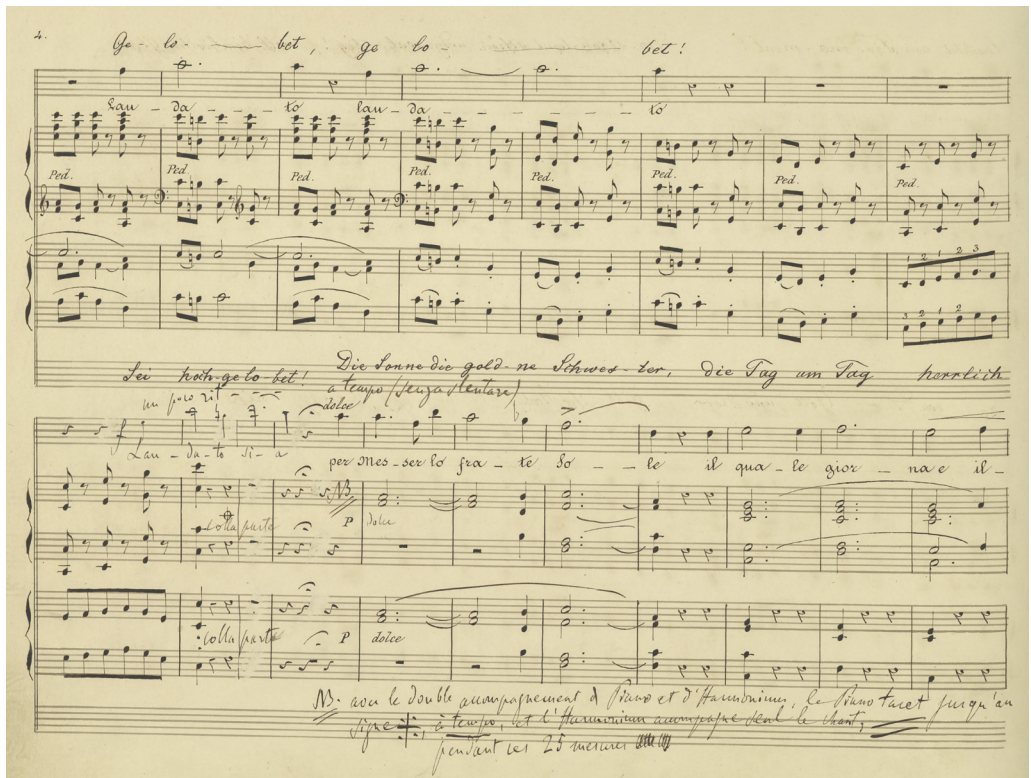 4.
Ge - lo - bet, ge lo bet!
Lau - da - to lau - da - to
Ped. Ped. Ped. Ped. Ped. Ped. Ped. Ped.
1 2 3
1 2 1 2
Sei hoch-ge lo-bet! Die Sonne die gold-ne Schwes-ter, die Tag um Tag herrlich
un poco rit - - - a tempo (senza slentare)
dolce
f
Lau - da-to si-a per Mes-ser lo fra-te So - - le il qua-le gior - na e il-
NB
colla parte P dolce
colla parte P dolce
NB. avec le double accompagnement de Piano et d'Harmonium, le Piano tacet jusqu'au
signe, a tempo, et l'Harmonium accompagne seul le chant,
pendant ces 25 mesures